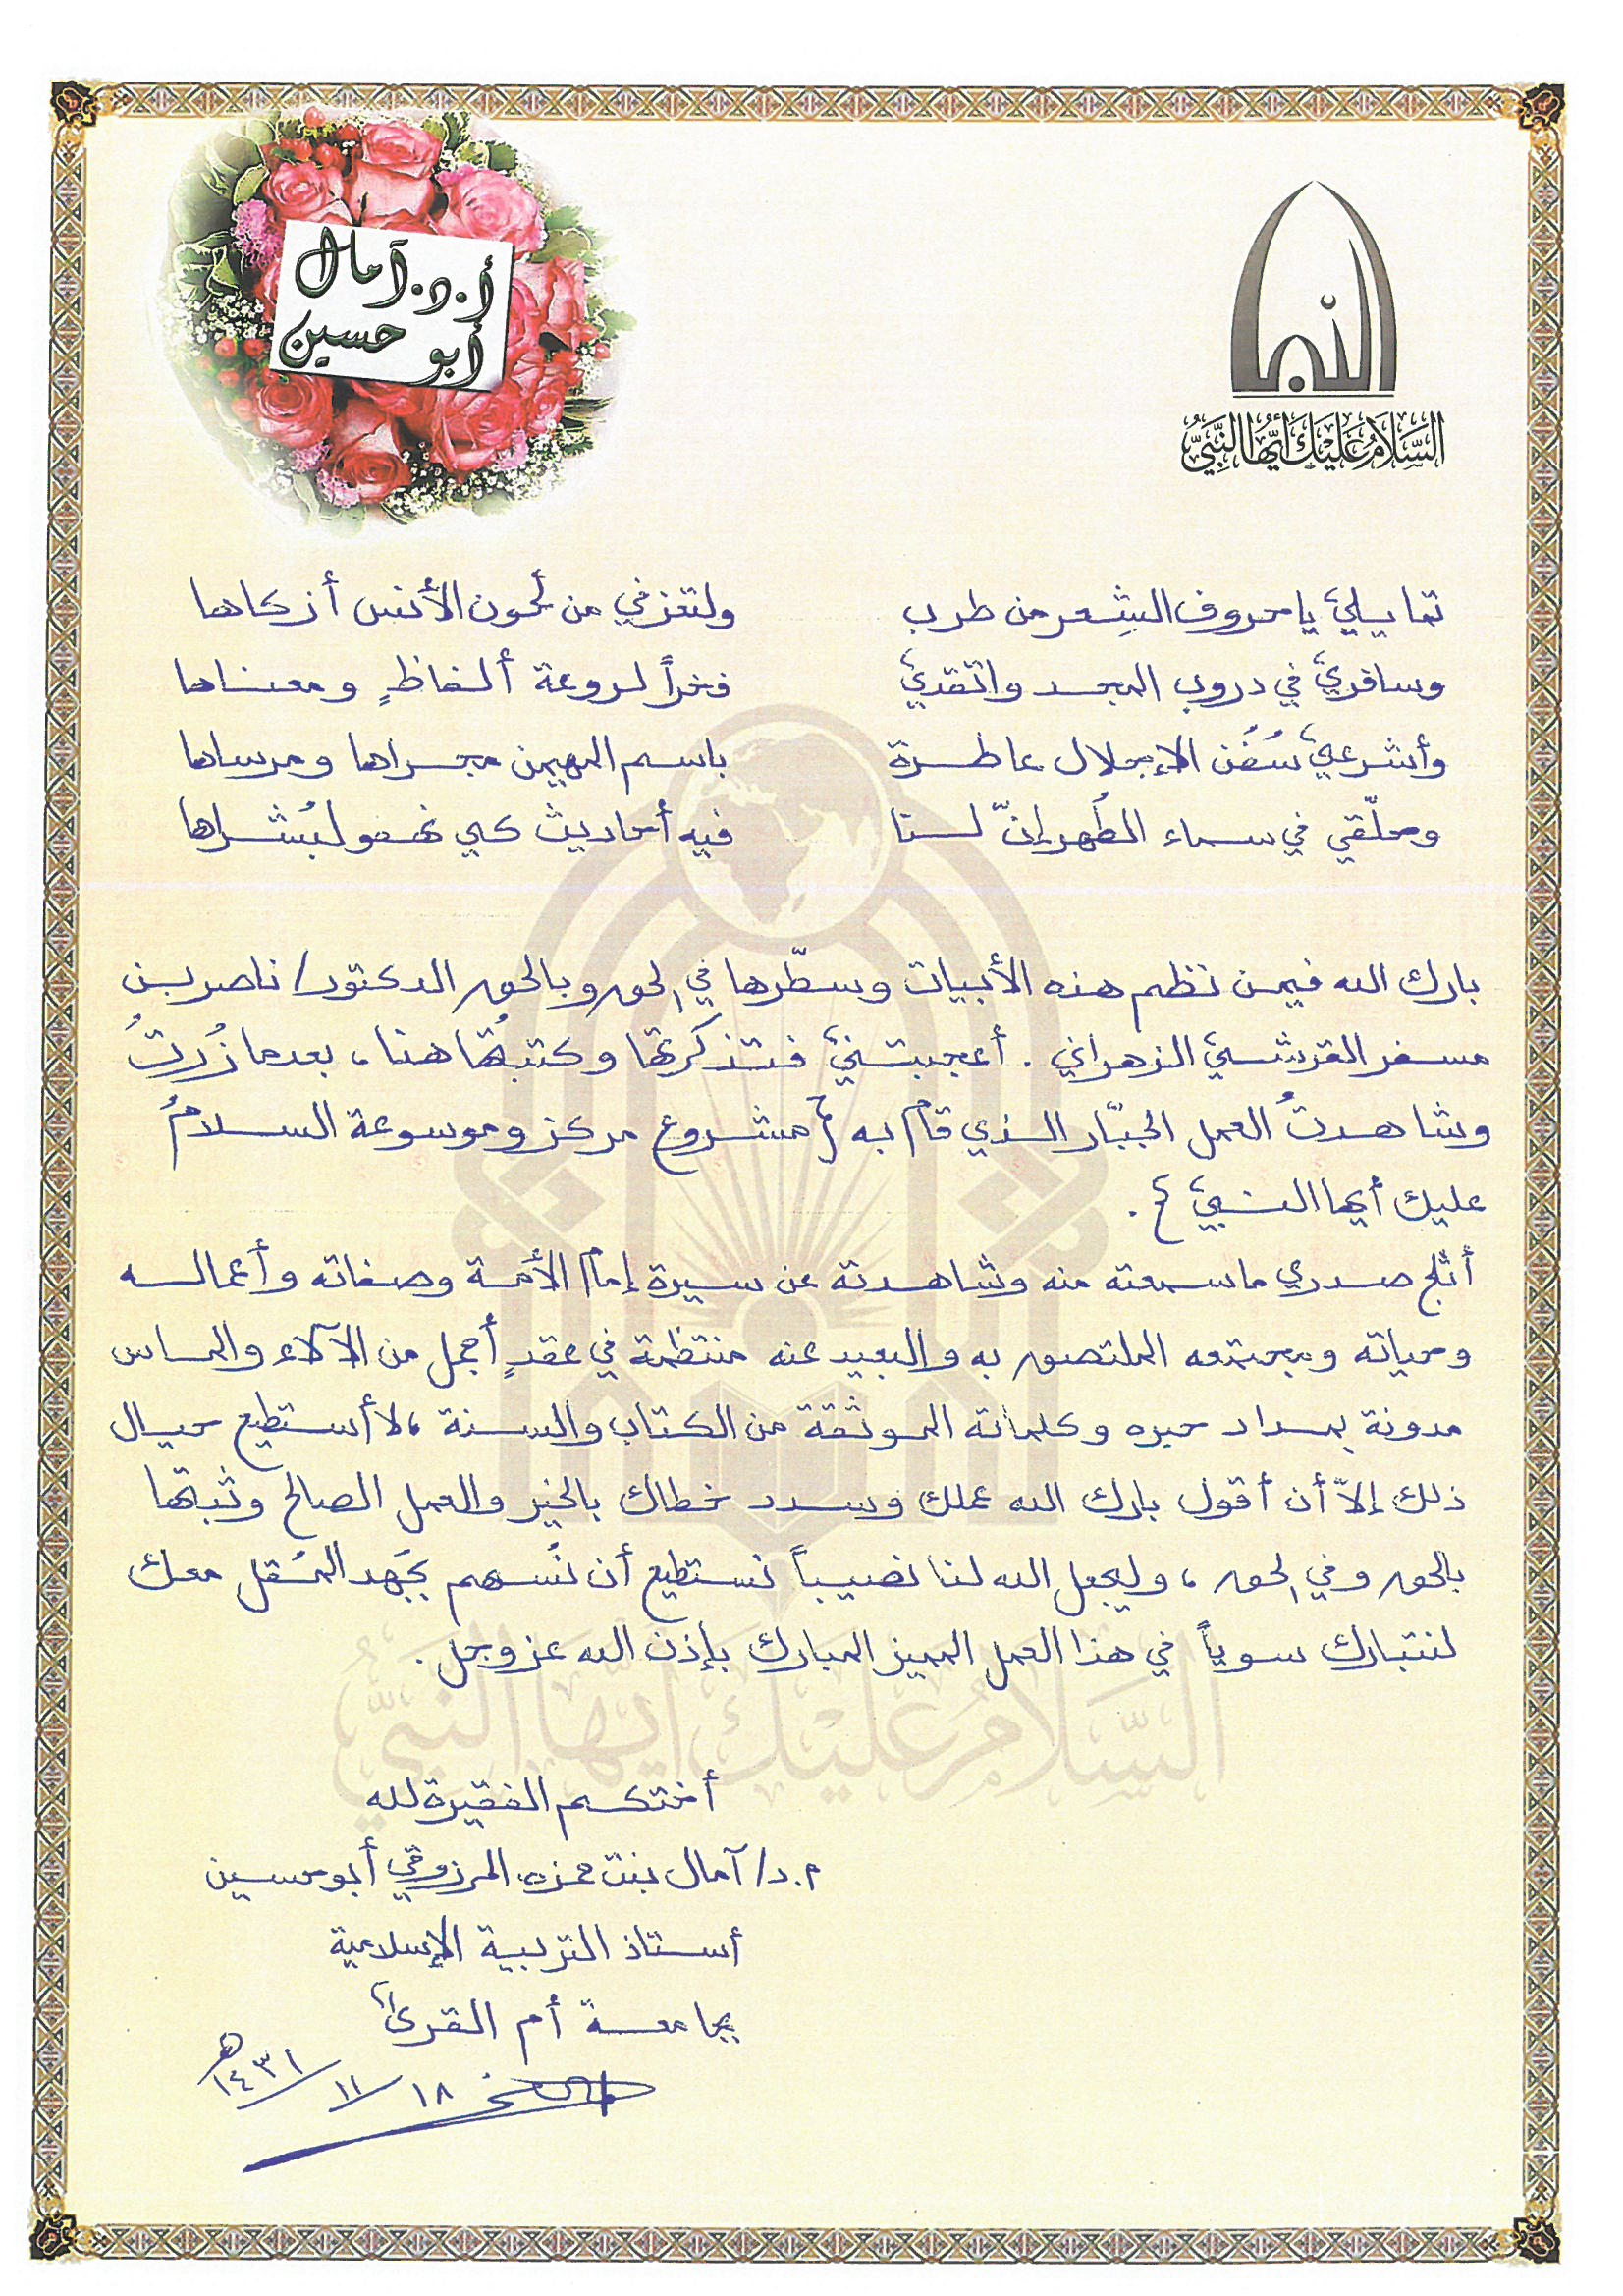 أ.د. آمال
أبو حسين
النبي
السَّلامُ عَلَيْكَ أيُّهَا النَّبِيُّ
تمايلي يا حروف الشِعر من طرب ولتعزفي من لحون الأنس أزكاها
وسافري في دروب المجد واتقدي فخراً لروعة ألفاظٍ ومعناها
وأشرعي سُفُن الإجلال عاطرة باسم المهيمن مجراها ومرساها
وحلّقي في سماء الطُهر إنّ لنا فيه أحاديث كي نهفو لبُشراها
بارك الله فيمن نظم هذه الأبيات وسطّرها في الحق وبالحق الدكتور/ ناصر بن
مسفر القرشي الزهراني . أعجبتني فتذكرتها وكتبتُها هنا، بعدما زُرتُ
وشاهدتُ العمل الجبّار الذي قام به {مشروع مركز وموسوعة السلامُ
عليك أيها النبي } .
أثلج صدري ما سمعته منه وشاهدته عن سيرة إمام الأمة وصفاته وأعماله
وحياته ومجتمعه الملتصق به والبعيد عنه منتظمة في عقدٍ أجمل من الآلاء والماس
مدونة بمداد حبره وكلماته الموثقة من الكتاب والسنة ، لا أستطيع حيال
ذلك إلاّ أن أقول بارك الله عملك وسدد خطاك بالخير والعمل الصالح وثبتها
بالحق وفي الحق ، وليجعل الله لنا نصيباً نستطيع أن نُسهم بجَهد المُقل معك
لنتبارك سوياً في هذا العمل المميز المبارك بإذن الله عز وجل .
السَّلامُ عَلَيْكَ أيُّهَا النَّبِيُّ
أختكم الفقيرة لله
م.د/ آمال بنت حمزه المرزوقي أبو حسين
أستاذ التربية الإسلامية
بجامعة أم القرى
١٨/١١/١٤٣١هـ